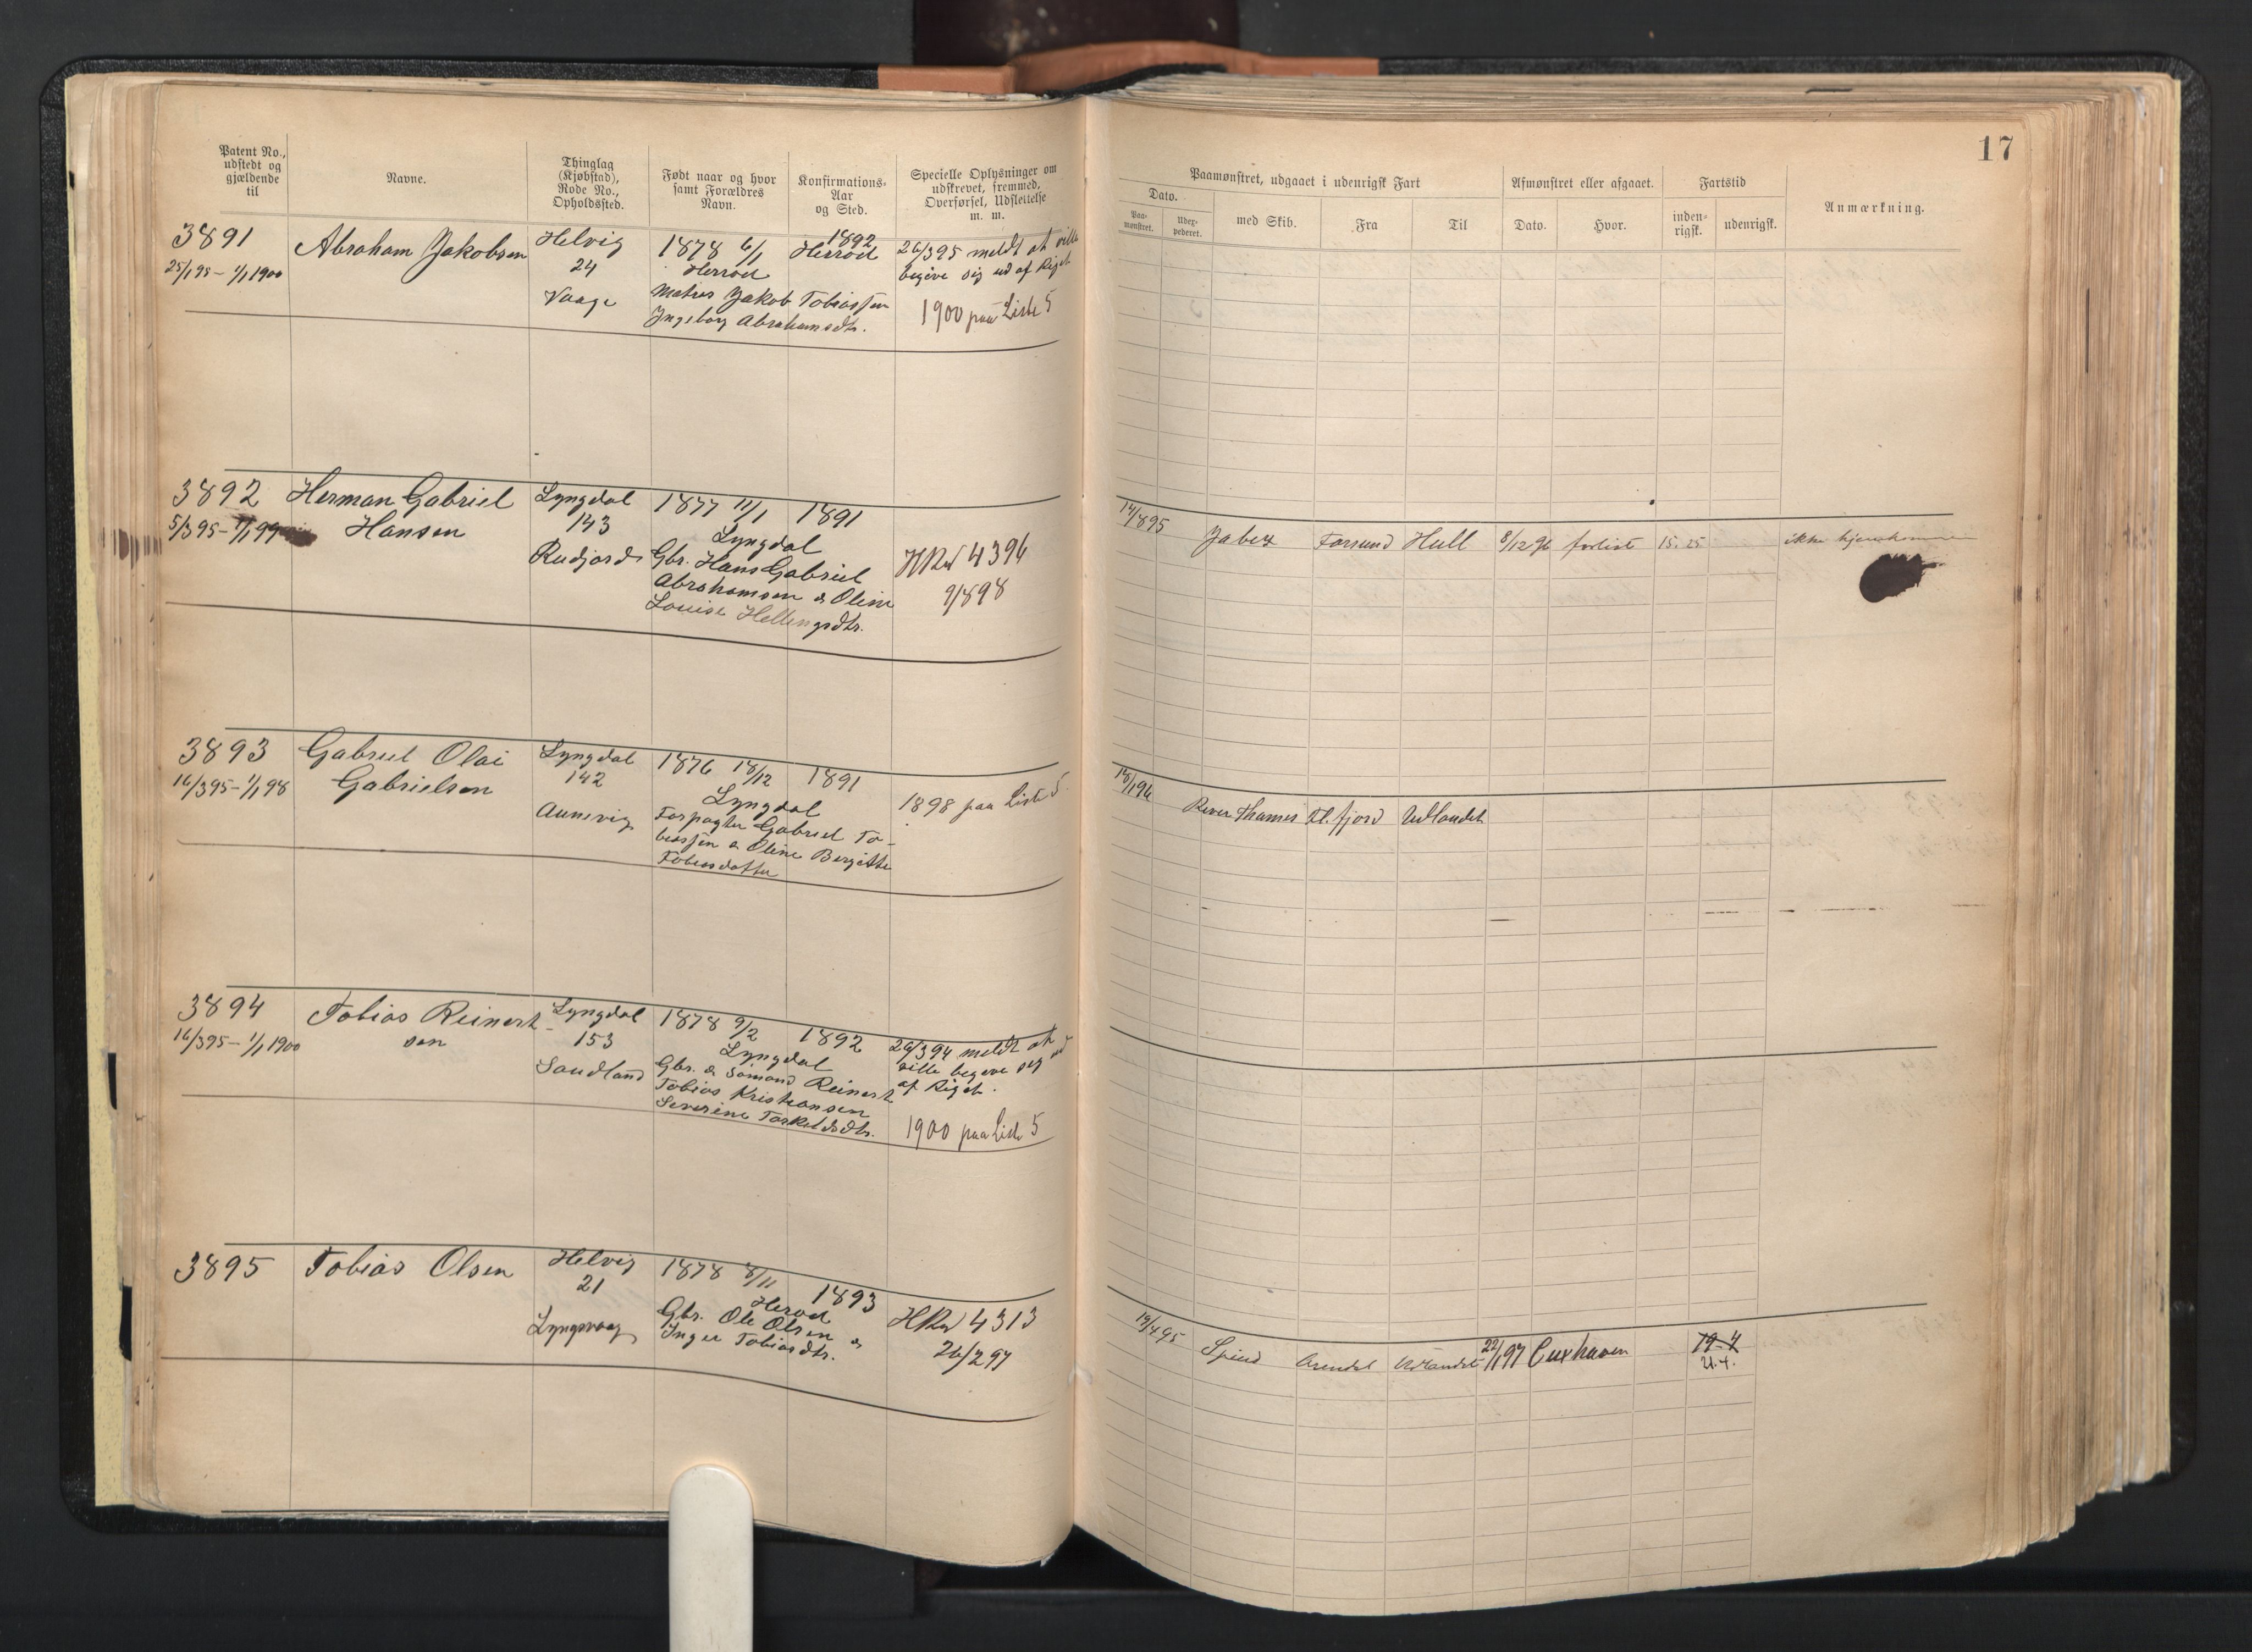 17
Patent No.,
udstedt og
gjældende
til
Navne.
Thinglag
(Kjøbstad),
Rode No.,
Opholdssted.
Født naar og hvor
samt Forældres
Navn.
Konfirmations-
Aar
og Sted.
Specielle Oplysninger om
udskrevet, fremmed,
Overførsel, Udslettelse
m. m.
Paamønstret, udgaaet i udenrigsk Fart
Dato.
Paa-
mønstret.
Uder-
pederet.
med Skib.
Fra
Til
Afmønstret eller afgaaet.
Dato.
Hvor.
Fartstid
inden-
rigsk.
udenrigsk.
Anmærkning.
3891
25/1 95 - 1/1 1900
Abraham Jakobsen
Helvig
24
Vaage
1878 6/1
Herrød
Matros Jakob Tobiassen
Ingeborg Abrahamsdtr.
1892
Herrød
26/3 95 meldt at ville
begive sig ud af Riget
1900 paa Liste 5
3892
5/3 95 - 1/1 99
Herman Gabriel
Hansen
Lyngdal
143
Rudjord
1877 11/1
1891
Lyngdal
Gbr. Hans Gabriel
Abrahamsen & Oline
Louise Hellingsdtr.
HRul 4396
9/8 98
14/8 95
Jabez
Farsund
Hull
8/12 96
forlist
15.25
ikke hjemkommen
3893
16/3 95 - 1/1 98
Gabriel Olai
Gabrielsen
Lyngdal
142
Aunevig
1876 18/12
1891
Lyngdal
Forpagter Gabriel To-
biassen & Oline Bergitte
Tobiasdatter
1898 paa Liste 5
18/1 96
River Thames
Fl.fjord
Udlandet
3894
16/3 95 - 1/1 1900
Tobias Reinert-
sen
Lyngdal
153
Sandland
1878 9/2
1892
Lyngdal
Gbr. & Sømand Reinert
Tobias Kristiansen
Severine Torkelsdtr.
26/3 94 meldt at
ville begeve sig ud
af Riget.
1900 paa Liste 5
3895
Tobias Olsen
Helvig
21
Lyngsvaag
1878 8/11
1893
Herød
Gbr. Ole Olsen &
Inger Tobiasdtr.
HRul 4313
26/2 97
19/4 95
Spind
Arendal
Udlandet
22/1 97
Cuxhaven
19-4
21.4.